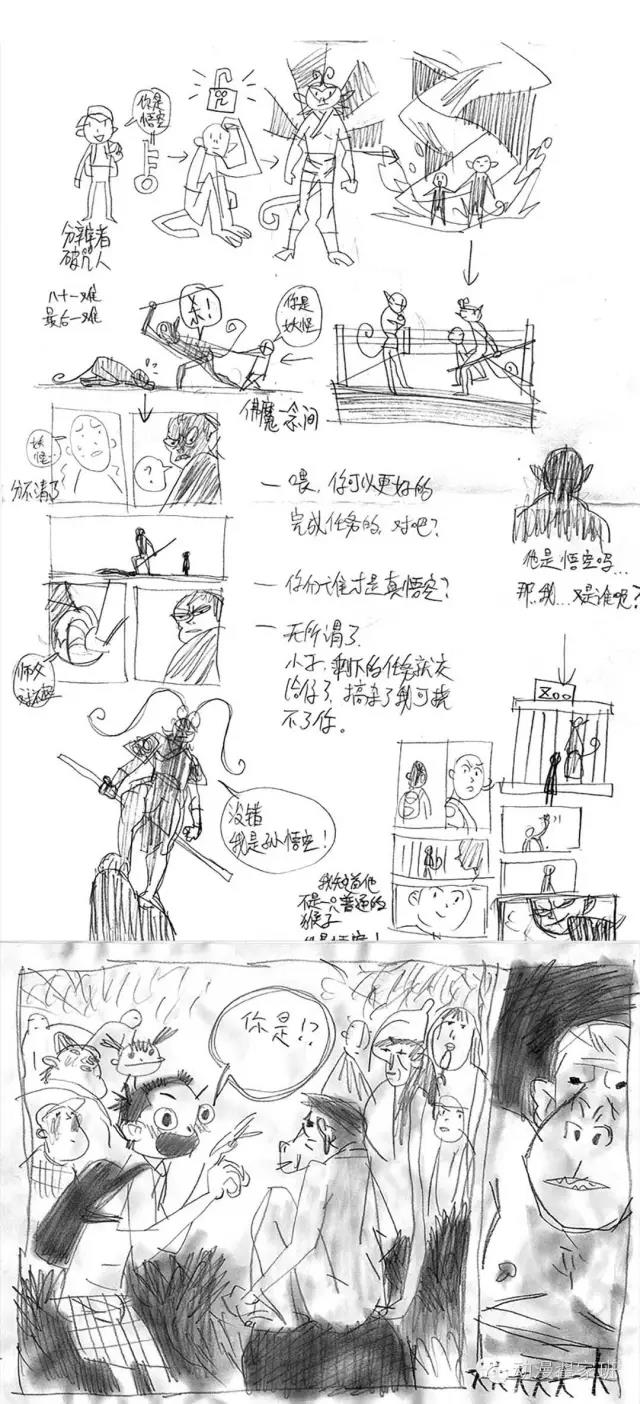 你是
悟空
咒
分辨者
破咒人
八十一难
最后一难
杀!
你是
妖怪
佛魔一念间
妖
怪…
?
分不清了
一 喂,你可以更好的
完成任务的,对吧?
一 你们谁才是真悟空?
一 无所谓了,
小子,剩下的任务就交
给你了,搞杂了我可饶
不了你。
他是悟空吗…
那..我…又是谁呢?
师父
对不起
没错
我是孙悟空!
Zoo
我知道他
不是一只普通的
猴子
他是悟空!
你是!?
动漫